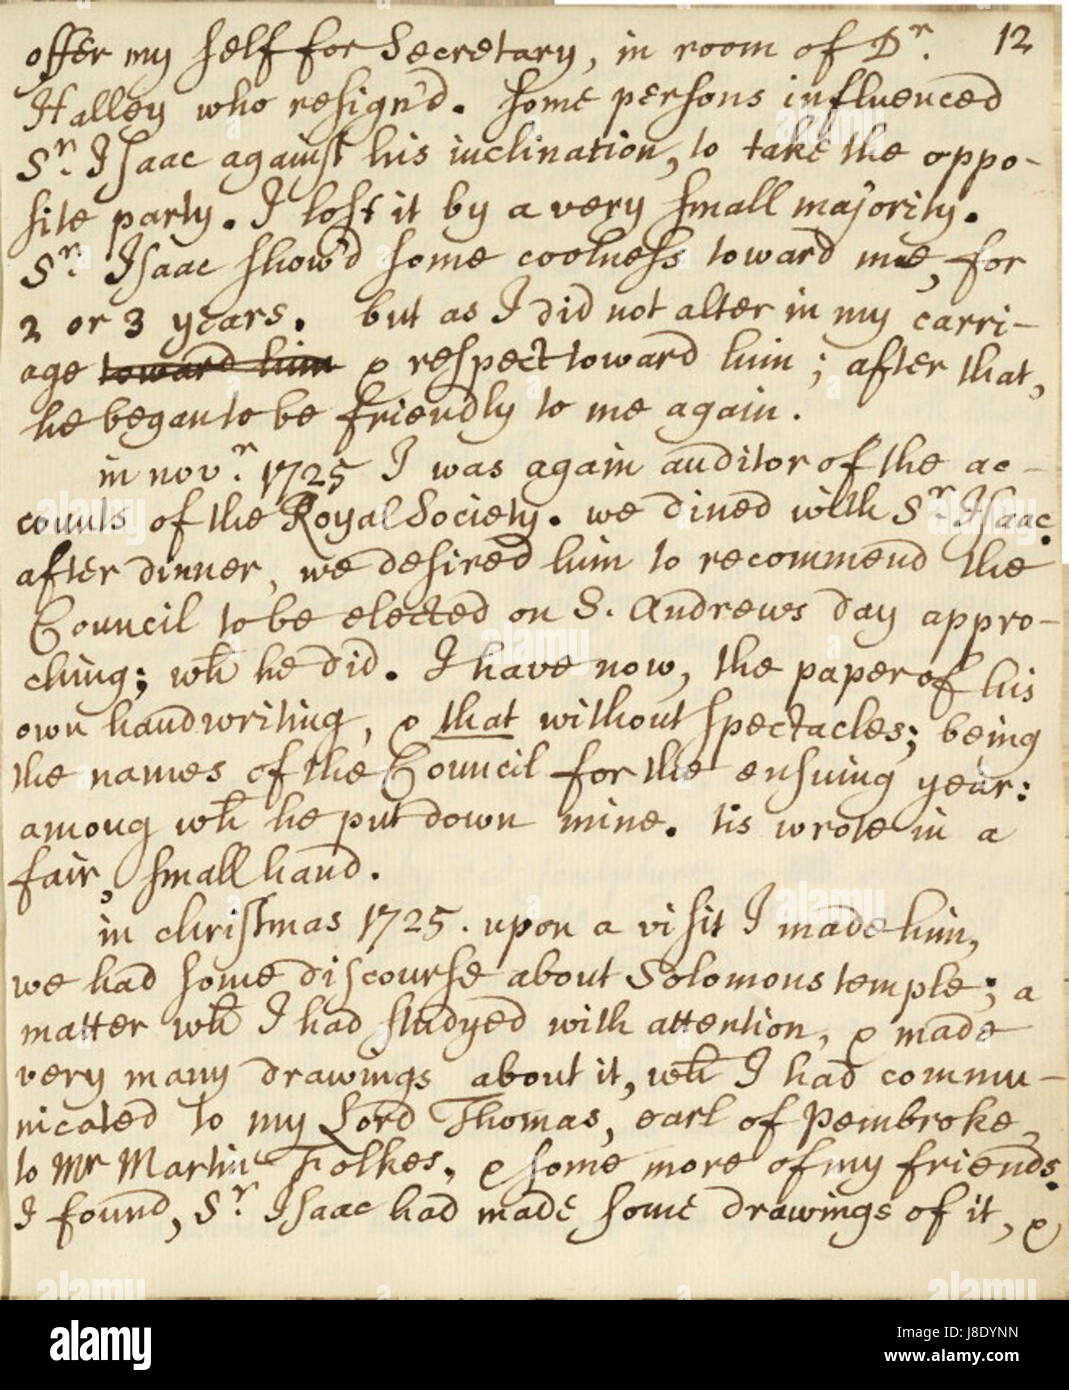 offer my self for Secretary, in room of Dr. 12
Halley who resign'd. some persons influenced
Sr. Isaac against his inclination, to take the oppo-
site party. I lost it by a very small majority.
Sr. Isaac show'd some coolness toward me, for
2 or 3 years. but as I did not alter in my carri-
age toward him & respect toward him; after that,
he began to be friendly to me again.
in novr. 1725 I was again auditor of the ac-
counts of the Royal Society. we dined with Sr. Isaac.
after dinner, we desired him to recommend the
Council to be elected on S. Andrews day appro-
ching; wh he did. I have now, the paper of his
own handwriting, & that without spectacles; being
the names of the Council for the ensuing year:
among wh he put down mine. tis wrote in a
fair, small hand.
in christmas 1725. upon a visit I made him,
we had some discourse about Solomons temple; a
matter wh I had studyed with attention, & made
very many drawings about it, wh I had commu-
nicated to my Lord Thomas, earl of Pembroke,
to Mr Martin Folkes, & some more of my friends.
I found, Sr. Isaac had made some drawings of it, &
alamy
Image ID: J8DYNN
www.alamy.com